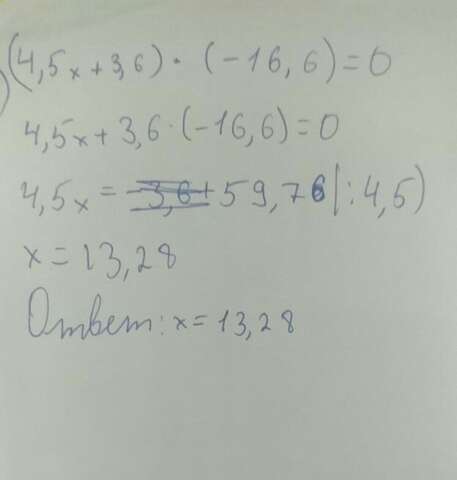 (4,5x+3,6)·(-16,6)=0
4,5x+3,6·(-16,6)=0
4,5x= 59,76|:4,5)
x=13,28
Ответ: x=13,28